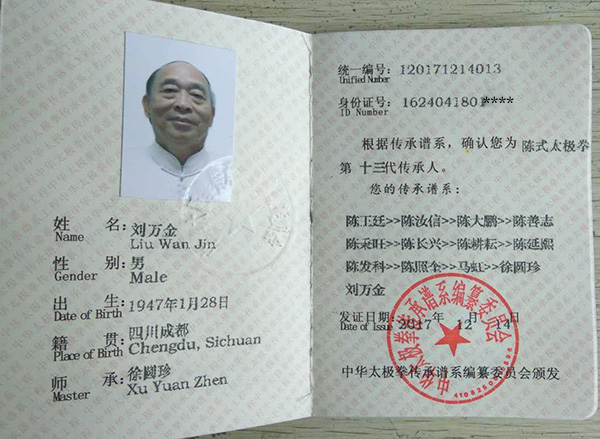 姓 名: 刘万金
Name Liu Wan Jin
性 别: 男
Gender Male
出 生: 1947年1月28日
Date of Birth
籍 贯: 四川成都
Place of Birth Chengdu, Sichuan
师 承: 徐圆珍
Master Xu Yuan Zhen
统一编号: 120171214013
Unified Number
身份证号: 1624041801****
ID Number
根据传承谱系，确认您为 陈式太极拳
第 十三代传承人。
您的传承谱系:
陈王廷>>陈汝信>>陈大鹏>>陈善志
陈秉旺>>陈长兴>>陈耕耘>>陈延熙
陈发科>>陈照奎>>马虹>>徐圆珍
刘万金
发证日期: 2017 年 12 月 14 日
Date of Issue
中华太极拳传承谱系编纂委员会
中华太极拳传承谱系编纂委员会颁发